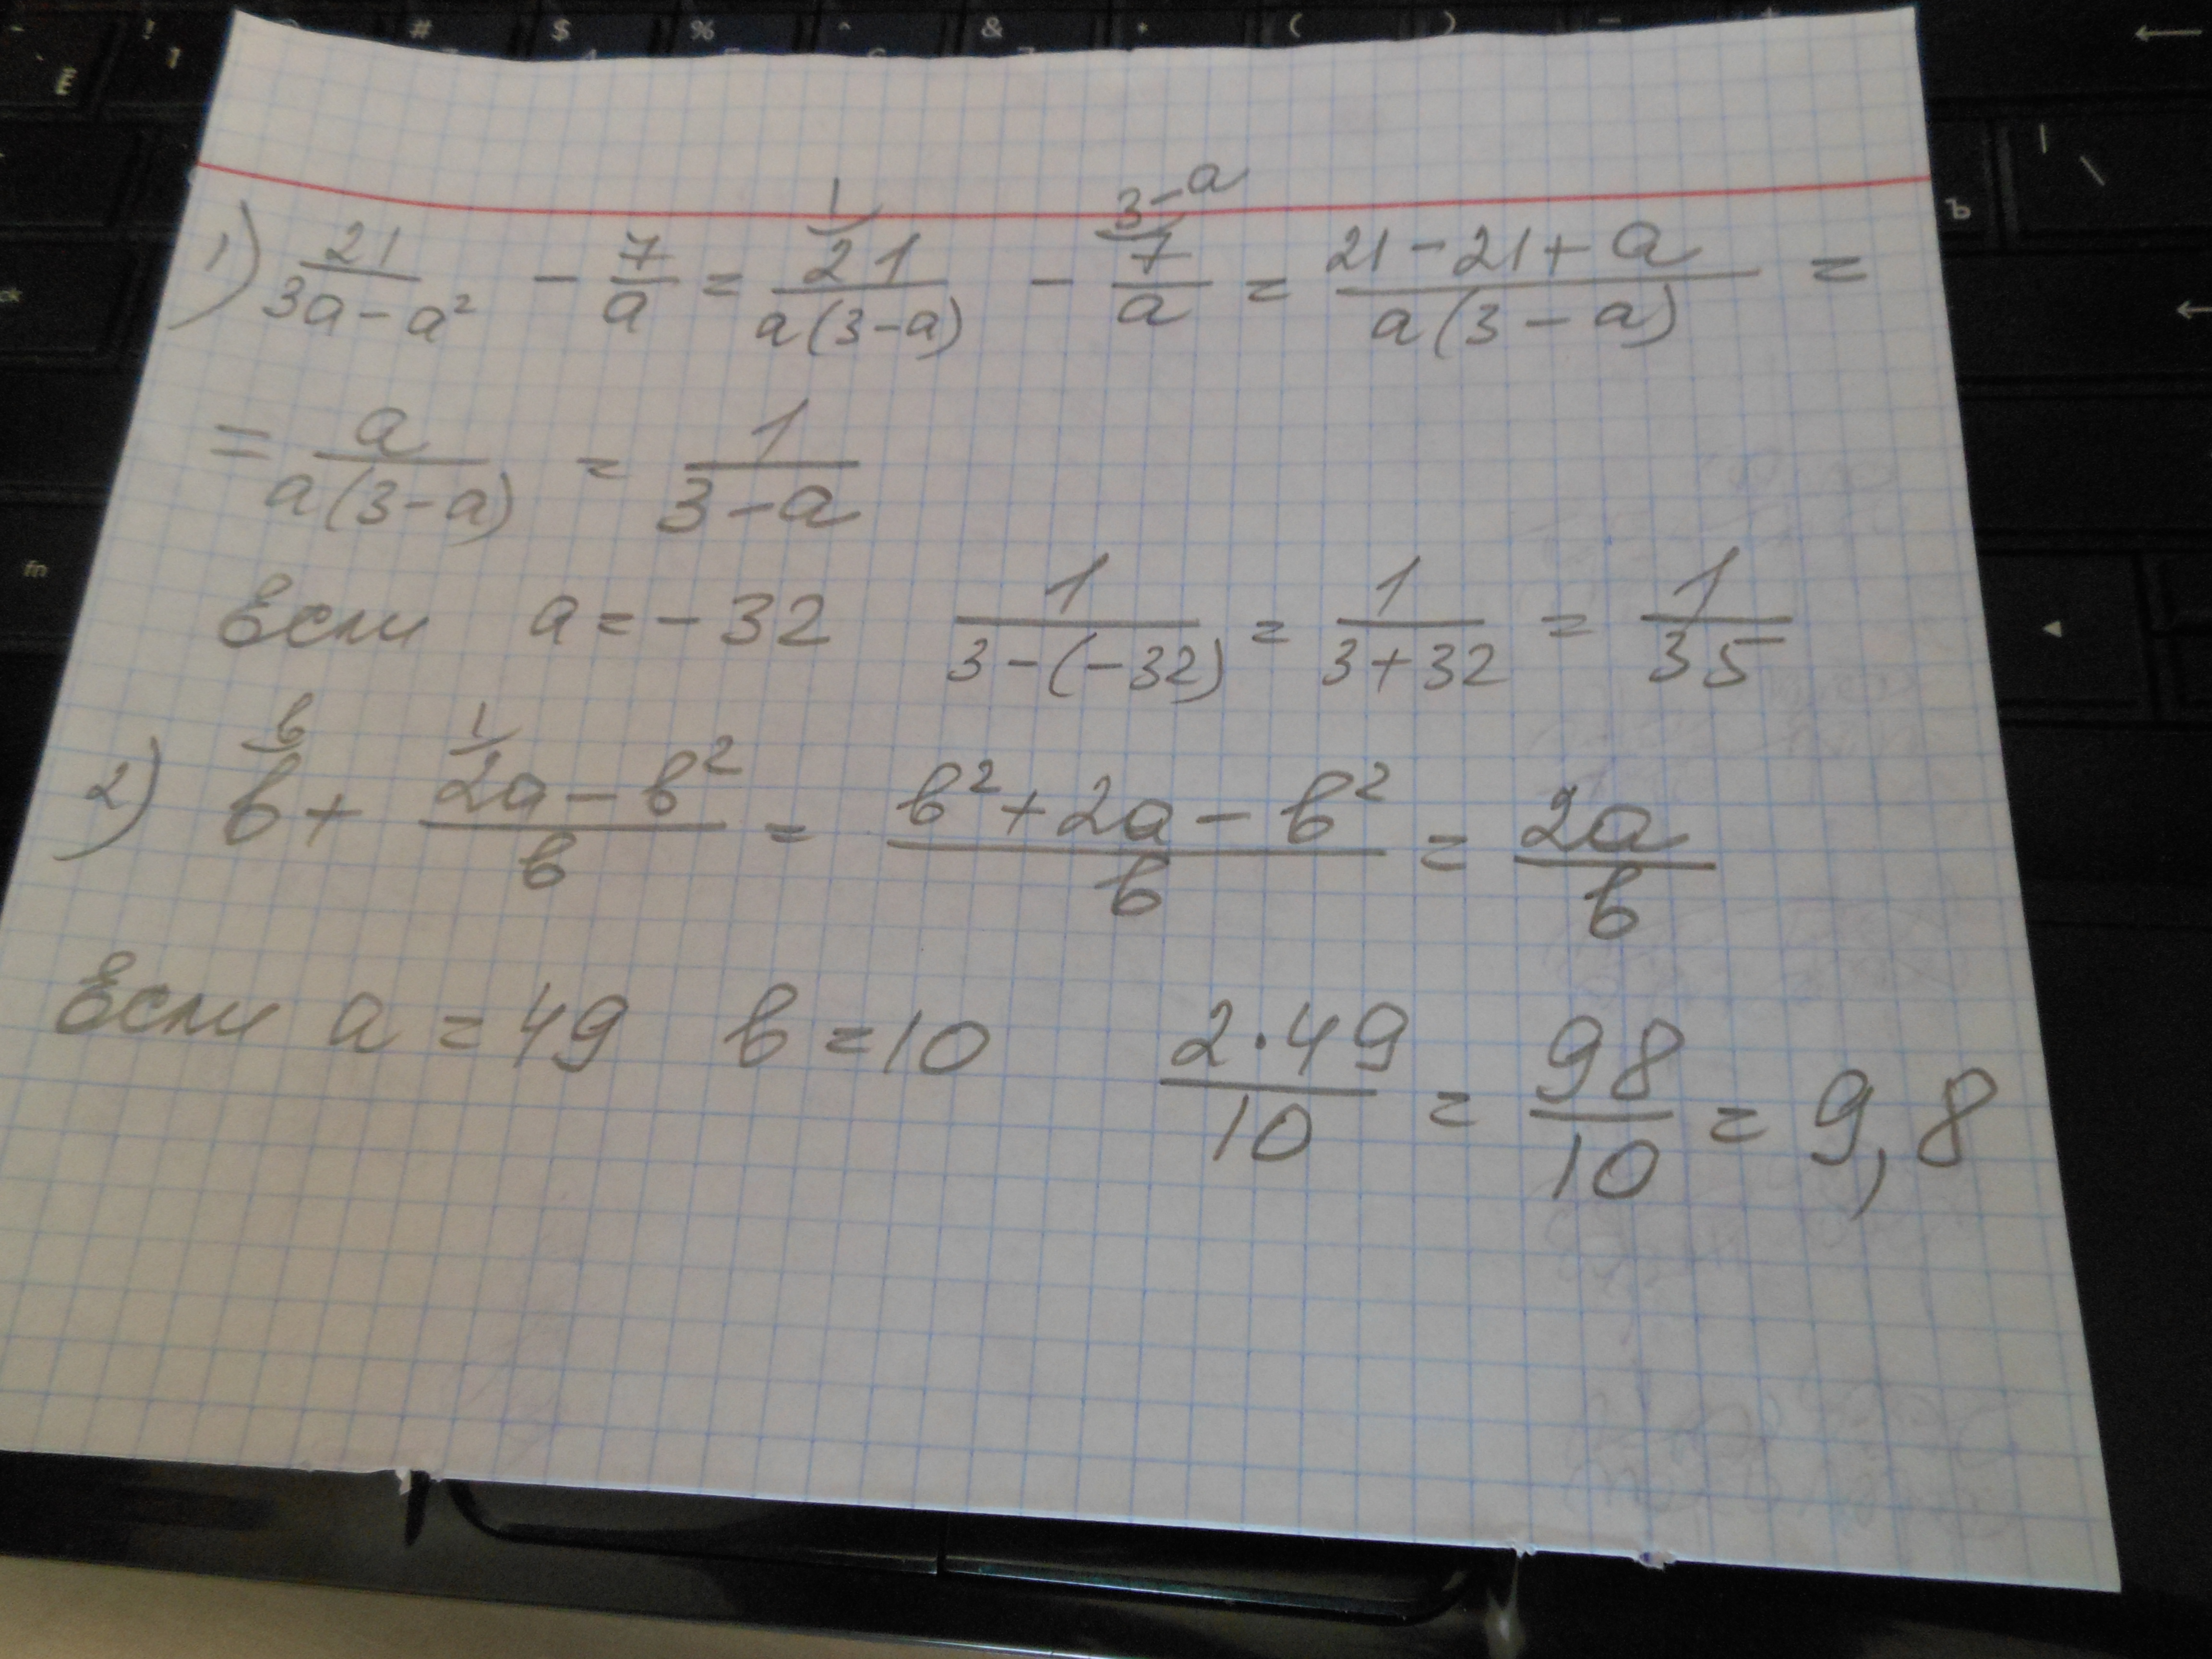 1) 21/(3a-a²) - 7/a = 21/(a(3-a)) ^1 - 7/a ^(3-a) = (21-21+a)/(a(3-a)) =
= a/(a(3-a)) = 1/(3-a)
Если a=-32 1/(3-(-32)) = 1/(3+32) = 1/35
2) в ^в + (2a-в²)/в ^1 = (в²+2a-в²)/в = 2a/в
Если a=49 в=10 (2·49)/10 = 98/10 = 9,8